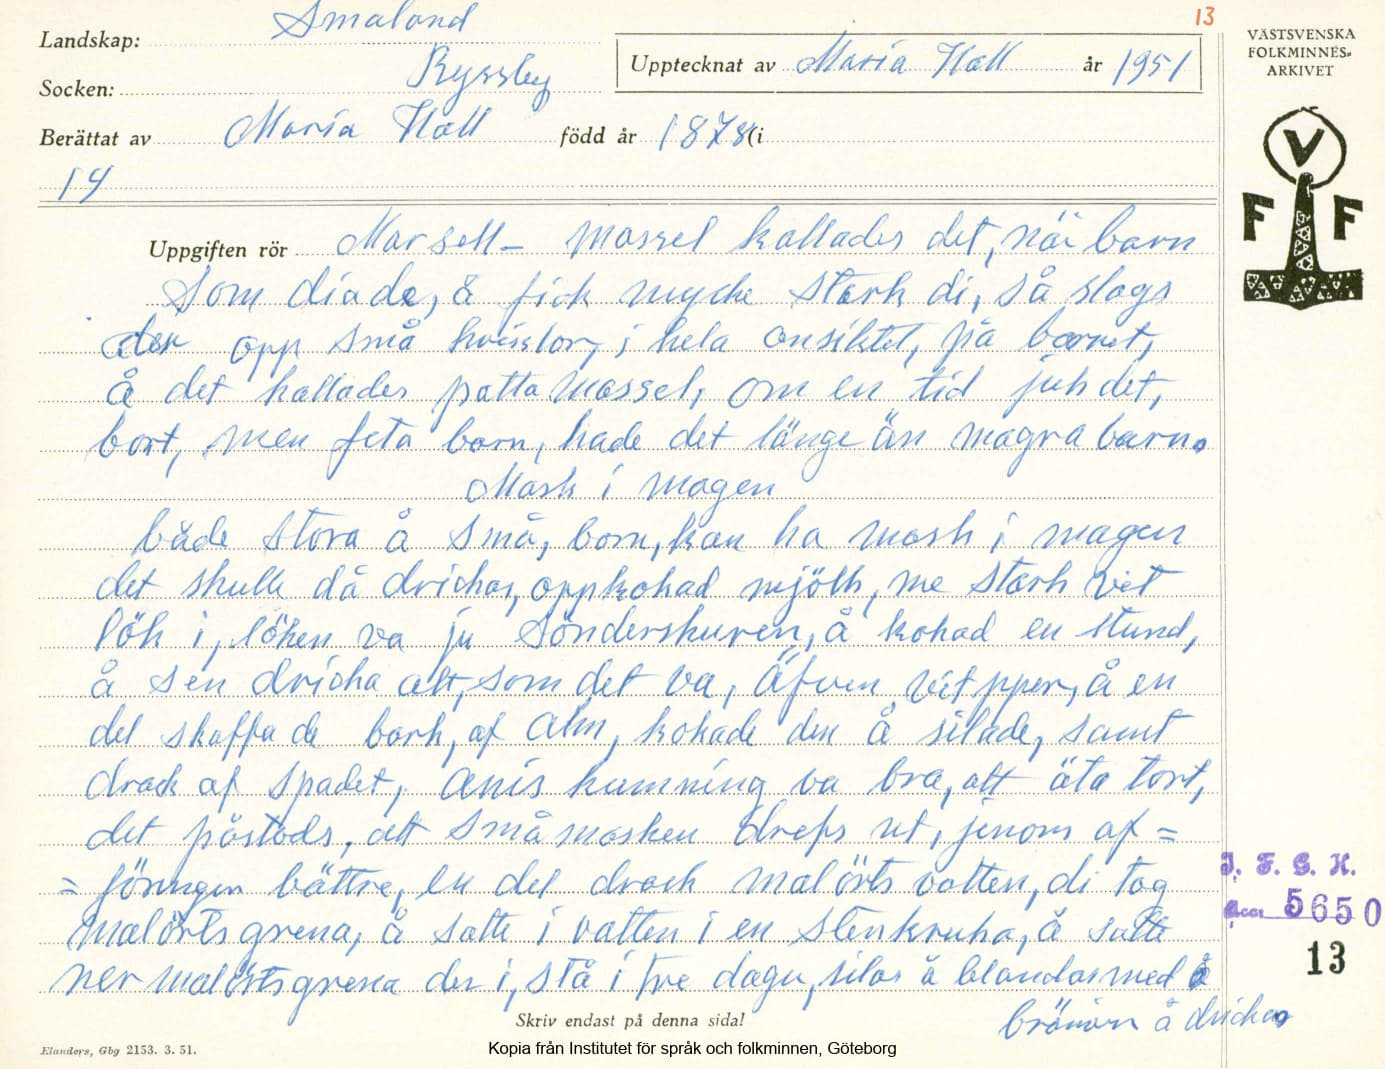 13
Landskap: Småland
Socken: Ryssby
Upptecknat av Maria Hall år 1951
Berättat av Maria Hall född år 1878 (i
14
VÄSTSVENSKA
FOLKMINNES-
ARKIVET
V
F F
Uppgiften rör Marsell- massel kallades det, när barn
som diade, å fick mycke stark di, så slogs
der opp små hvisslor, i hela ansiktet, på barnet,
å det kallades pattamassel, om en tid jick det,
bort, men feta barn, hade det länge än magra barn.
Mask i magen
både stora å små, barn, kan ha mask i magen
det skulle då drickas, oppkokad mjölk, me stark vit
lök i, löken va ju sönderskuren, å kokad en stund,
å sen dricka alt, som det va, äfven vit pper, å en
del skaffade bark, af alm, kokade den å silade, samt
drack af spadet, anis kumning va bra, att äta tort,
det påstods, att små masken drefs ut, jenom af=
= föringen bättre, en del drack malörts vatten, di tog
malörtsgrena, å satte i vatten i en stenkruka, å satte
ner malörtsgrena der i, stå i tre dagar, silas å blandas med å
brännvin å drickas
I. F. G. H.
Acc. 5650
13
Skriv endast på denna sida!
Elanders, Gbg 2153. 3. 51.
Kopia från Institutet för språk och folkminnen, Göteborg